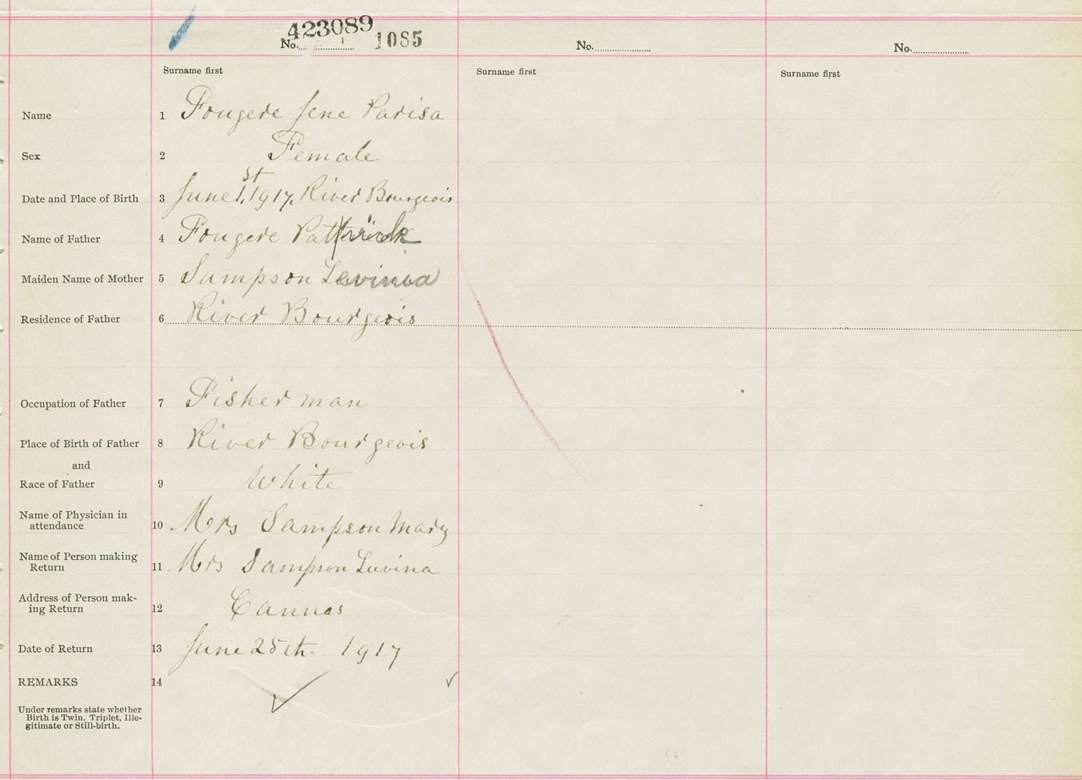 423089
No. 1085
No.
No.
Surname first
Surname first
Surname first
Name 1 Fougere Jene Parisa
Sex 2 Female
Date and Place of Birth 3 June 1st, 1917, River Bourgeois
Name of Father 4 Fougere Patrick
Maiden Name of Mother 5 Sampson Levinia
Residence of Father 6 River Bourgeois
Occupation of Father 7 Fisherman
Place of Birth of Father 8 River Bourgeois
and
Race of Father 9 White
Name of Physician in
attendance 10 Mrs Sampson Mary
Name of Person making
Return 11 Mrs Sampson Luvina
Address of Person mak-
ing Return 12 Cannes
Date of Return 13 June 25th 1917
REMARKS 14
Under remarks state whether
Birth is Twin, Triplet, Ille-
gitimate or Still-birth.